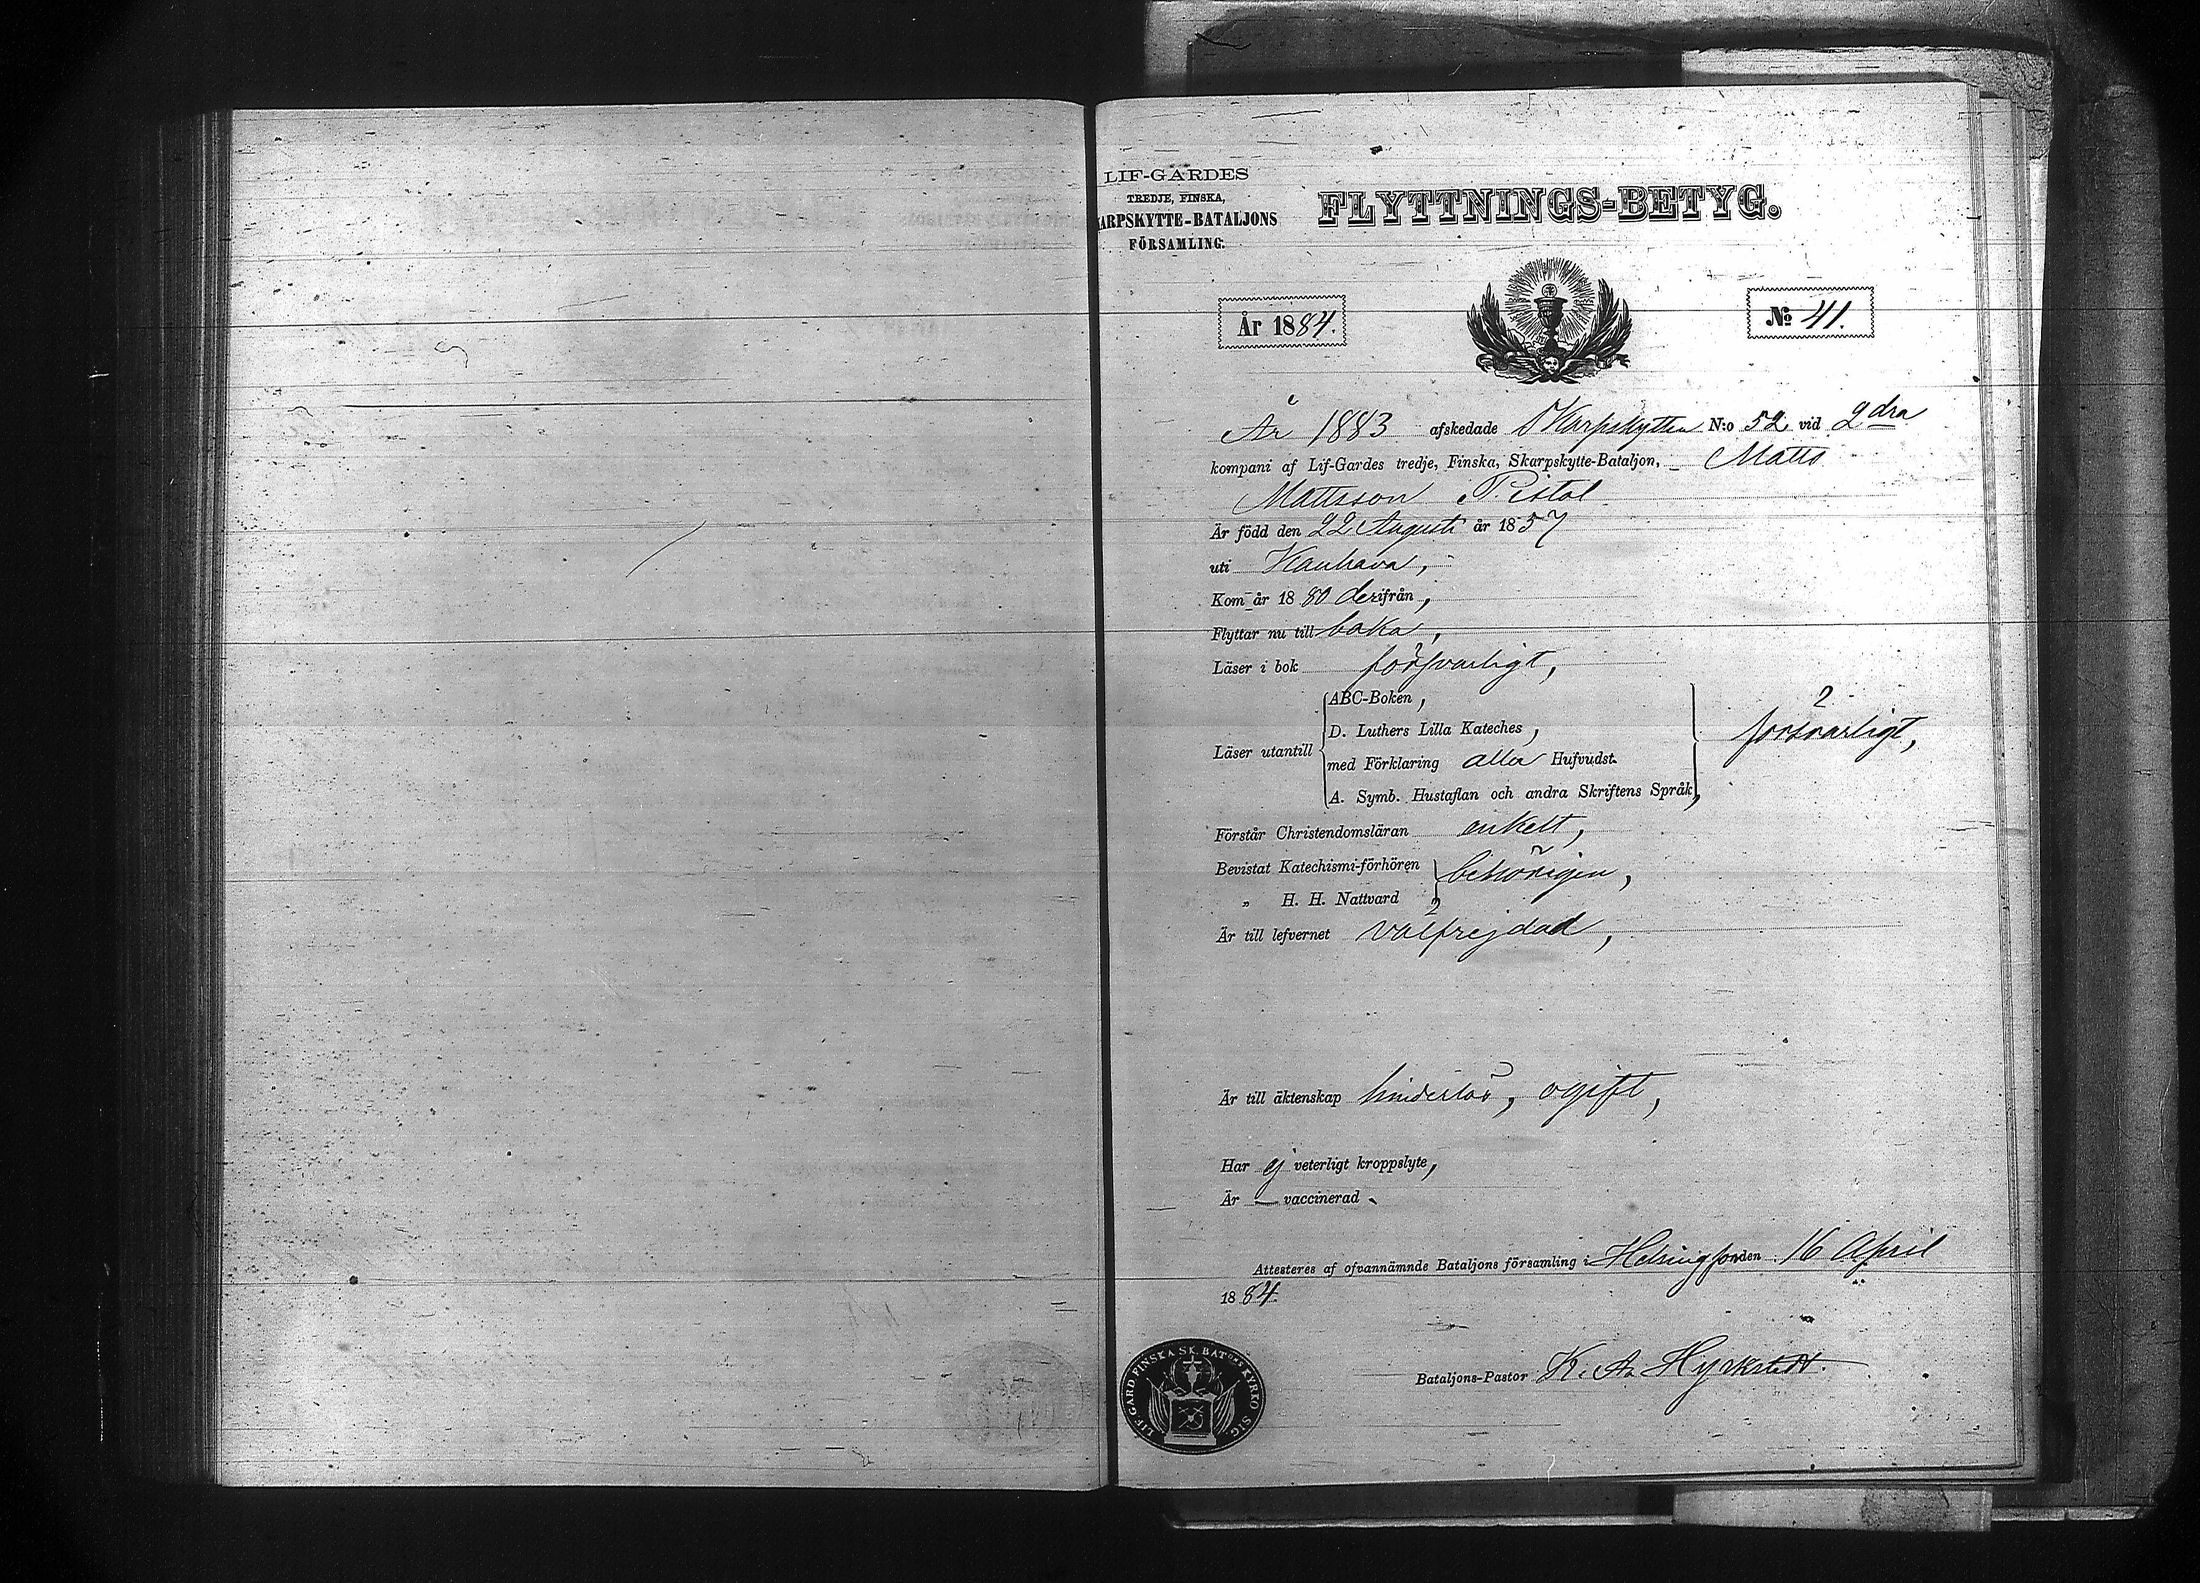 LIF-GARDES
TREDJE, FINSKA,
ARPSKYTTE-BATALJONS
FÖRSAMLING.
FLYTTNINGS-BETYG.
År 1884.
No 41.
År 1883 afskedade Skarpskytten N:o 52 vid 2dra
kompani af Lif-Gardes tredje, Finska, Skarpskytte-Bataljon, Matts
Mattsson Pistol
Är född den 22 Augusti år 1857
uti Kauhava,
Kom år 1880 derifrån,
Flyttar nu till baka,
Läser i bok försvarligt,
Läser utantill
ABC-Boken,
D. Luthers Lilla Kateches,
med Förklaring alla Hufvudst.
A. Symb. Hustaflan och andra Skriftens Språk,
försvarligt,
Förstår Christendomsläran enkelt,
Bevistat Katechismi-förhören
„ H. H. Nattvard
behörigen,
Är till lefvernet välfrejdad,
Är till äktenskap hinderlös, ogift,
Har ej veterligt kroppslyte,
Är — vaccinerad.
Attesteres af ofvannämnde Bataljons församling i Helsingfors den 16 April
1884.
Bataljons-Pastor K. A. Hyrkstedt.
LIF-GARD FINSKA SK. BATONS KYRKO SIG.